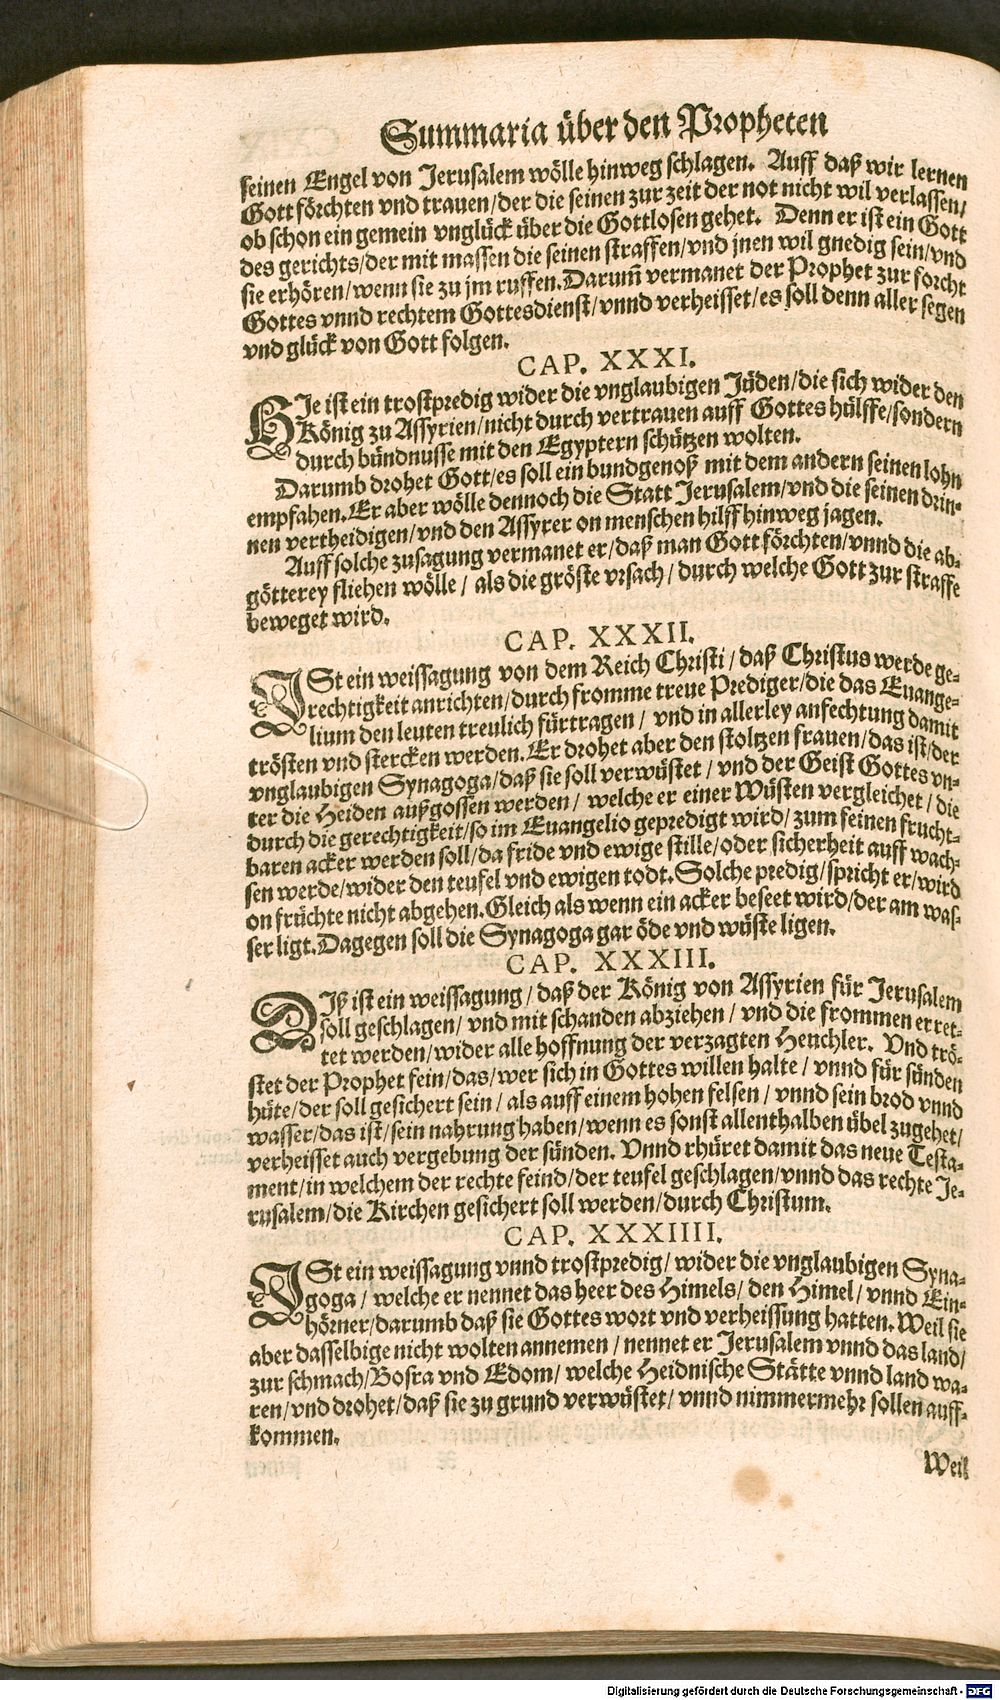 Summaria über den Propheten
seinen Engel von Jerusalem wölle hinweg schlagen. Auff daß wir lernen
Gott förchten vnd trauen/der die seinen zur zeit der not nicht wil verlassen/
ob schon ein gemein vnglück über die Gottlosen gehet. Denn er ist ein Gott
des gerichts/der mit massen die seinen straffen/vnd jnen wil gnedig sein/vnd
sie erhören/wenn sie zu jm ruffen. Darum̃ vermanet der Prophet zur forcht
Gottes vnnd rechtem Gottesdienst/vnnd verheisset/es soll denn aller segen
vnd glück von Gott folgen.
CAP. XXXI.
HJe ist ein trostpredig wider die vnglaubigen Jüden/die sich wider den
König zu Assyrien/nicht durch vertrauen auff Gottes hülffe/sondern
durch bündnusse mit den Egyptern schützen wolten.
Darumb drohet Gott/es soll ein bundgenoß mit dem andern seinen lohn
empfahen. Er aber wölle dennoch die Statt Jerusalem/vnd die seinen drin-
nen vertheidigen/vnd den Assyrer on menschen hilff hinweg jagen.
Auff solche zusagung vermanet er/daß man Gott förchten/vnnd die ab-
götterey fliehen wölle/ als die gröste vrsach/durch welche Gott zur straffe
beweget wird.
CAP. XXXII.
JSt ein weissagung von dem Reich Christi/daß Christus werde ge-
rechtigkeit anrichten/durch fromme treue Prediger/die das Euange-
lium den leuten treulich fürtragen/ vnd in allerley anfechtung damit
trösten vnd stercken werden. Er drohet aber den stoltzen frauen/das ist/der
vnglaubigen Synagoga/daß sie soll verwüstet/ vnd der Geist Gottes vn-
ter die Heiden außgossen werden/ welche er einer Wüsten vergleichet/die
durch die gerechtigkeit/so im Euangelio gepredigt wird/zum feinen frucht-
baren acker werden soll/da fride vnd ewige stille/oder sicherheit auff wach-
sen werde/wider den teufel vnd ewigen todt. Solche predig/spricht er/wird
on früchte nicht abgehen. Gleich als wenn ein acker beseet wird/der am was-
ser ligt. Dagegen soll die Synagoga gar öde vnd wüste ligen.
CAP. XXXIII.
DJß ist ein weissagung/daß der König von Assyrien für Jerusalem
soll geschlagen/ vnd mit schanden abziehen/ vnd die frommen erret-
tet werden/wider alle hoffnung der verzagten Heuchler. Vnd trö-
stet der Prophet fein/das/wer sich in Gottes willen halte/ vnnd für sünden
hüte/der soll gesichert sein/als auff einem hohen felsen/ vnnd sein brod vnnd
wasser/das ist/sein nahrung haben/wenn es sonst allenthalben übel zugehet/
verheisset auch vergebung der sünden. Vnnd rhüret damit das neue Testa-
ment/in welchem der rechte feind/der teufel geschlagen/vnnd das rechte Je-
rusalem/die Kirchen gesichert soll werden/durch Christum.
CAP. XXXIIII.
JSt ein weissagung vnnd trostpredig/wider die vnglaubigen Syna-
goga/ welche er nennet das heer des Himels/den Himel/ vnnd Ein-
hörner/darumb daß sie Gottes wort vnd verheissung hatten. Weil sie
aber dasselbige nicht wolten annemen/ nennet er Jerusalem vnnd das land/
zur schmach/Bosra vnd Edom/ welche Heidnische Stätte vnnd land wa-
ren/vnd drohet/daß sie zu grund verwüstet/ vnnd nimmermehr sollen auff-
kommen.
Weil
Digitalisierung gefördert durch die Deutsche Forschungsgemeinschaft - DFG